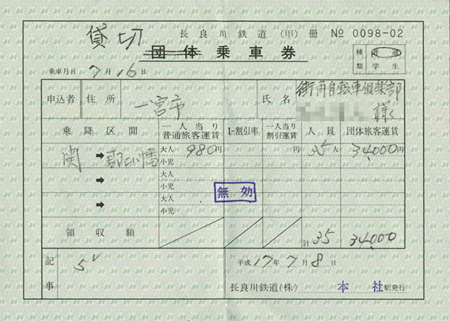 貸切 長良川鉄道 (甲) 冊 № 0098-02
団体乗車券 種類 学生
乗車月日 7月16日
申込者 住所 一宮市 氏名 街角自転車倶楽部 様
乗降区間 一人当り普通旅客運賃 1-割引率 一人当り割引運賃 人員 団体旅客運賃
関 ➡ 郡上八幡 大人 980円 円 35人 34,000円
小児
➡ 大人
小児
無効
➡ 大人
小児
領収額 計35 34,000
記事 平成17年7月8日
長良川鉄道(株) 本社 駅発行